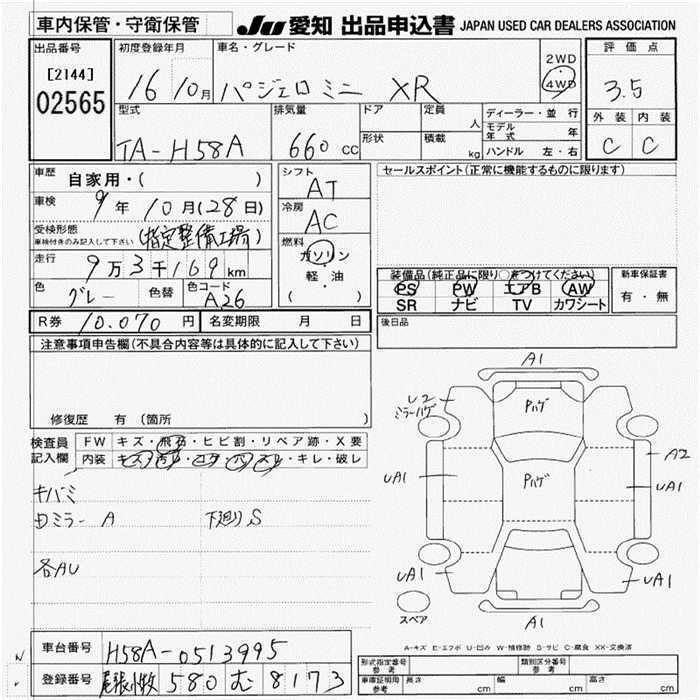 車内保管・守衛保管 JU 愛知 出品申込書 JAPAN USED CAR DEALERS ASSOCIATION
出品番号 初度登録年月 車名・グレード 評価点
[2144] 16 10月 パジェロミニ XR 2WD 4WD 3.5
02565
型式 排気量 ドア 定員 人 ディーラー・並行 外装 内装
TA-H58A 660 cc 形状 積載 kg モデル年式 年 C C
ハンドル 左・右
車歴 自家用・( ) シフト AT セールスポイント(正常に機能するものに限ります)
車検 9年10月(28日) 冷房 AC
受検形態 (指定整備工場)
車検付きのみ記入して下さい
燃料 ガソリン 軽・油 ( )
走行 9万3千169km
装備品(純正品に限り○をつけてください) 新車保証書
PS PW エアB AW 有・無
SR ナビ TV カワシート
色 グレー 色替 色コード A26
R券 10.070円 名変期限 月 日 後日品
注意事項申告欄(不具合内容等は具体的に記入して下さい)
修復歴 有 (箇所 )
検査員記入欄 FW キズ・飛石・ヒビ割・リペア跡・X要
内装 キズ・汚れ・コゲ・穴・スレ・キレ・破レ
キバミ
ミラー A 下廻りS
各AU
A1
U2
ミラーハゲ
Pハゲ
A2
UA1 Pハゲ UA1
UA1 UA1
スペア A1
A-キズ E-エクボ U-凹み W-補修跡 S-サビ C-腐食 XX-交換済
車台番号 H58A-0513995
登録番号 尾張小牧 580 む 8173
型式指定番号 参考 類別区分番号 参考
車庫証明用 参考 長さ cm 幅 cm 高さ cm